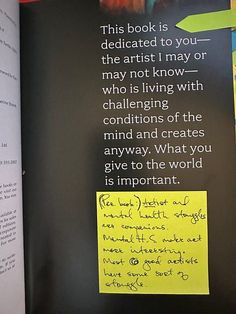 This book is
dedicated to you—
the artist I may or
may not know—
who is living with
challenging
conditions of the
mind and creates
anyway. What you
give to the world
is important.
(Per book) Artist and
mental health struggles
are companions.
Mental H. S make art
more interesting.
Most good artists
have some sort of
struggle.